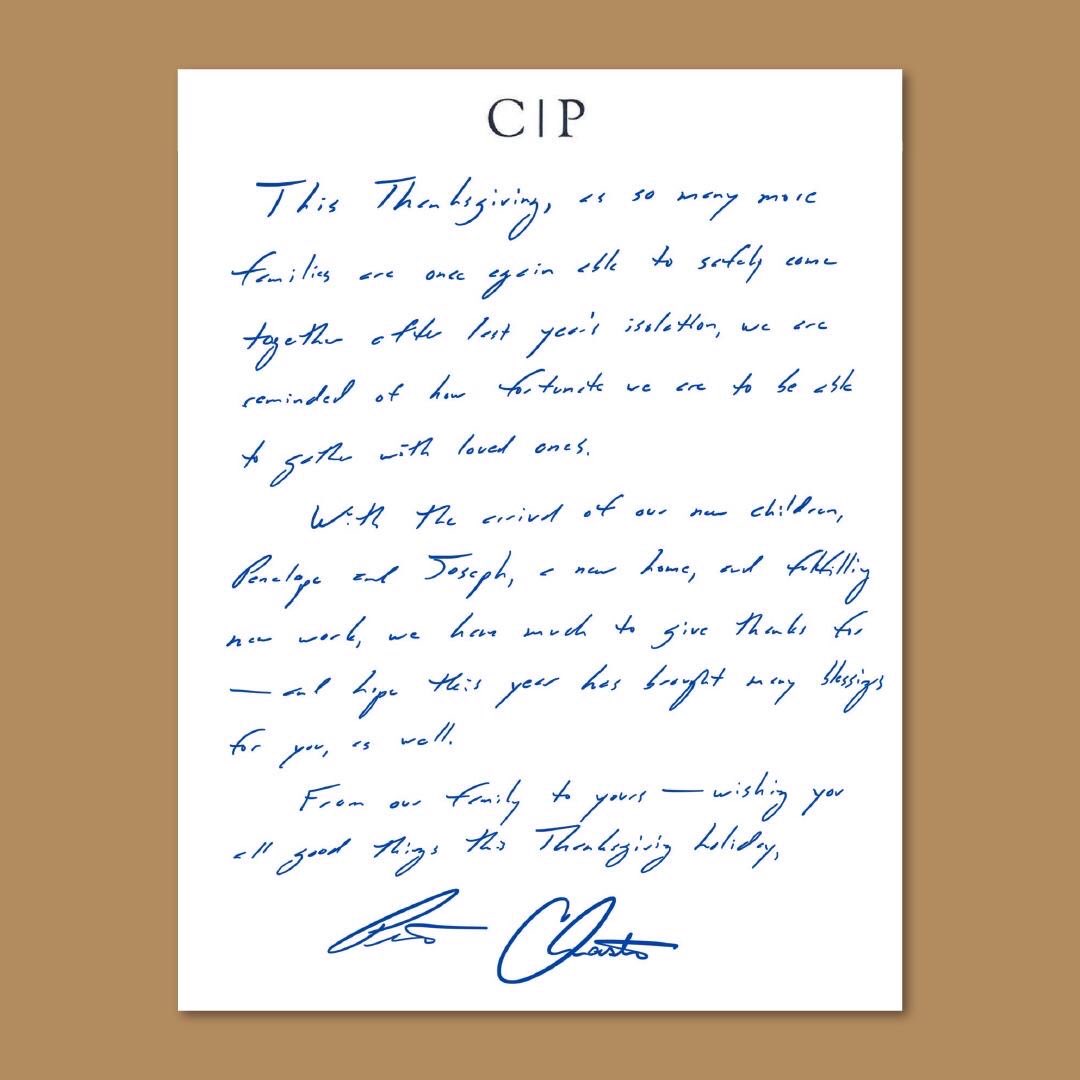 C|P
This Thanksgiving, as so many more
families are once again able to safely come
together after last year's isolation, we are
reminded of how fortunate we are to be able
to gather with loved ones.
With the arrival of our new children,
Penelope and Joseph, a new home, and fulfilling
new work, we have much to give thanks for
— and hope this year has brought many blessings
for you, as well.
From our family to yours — wishing you
all good things this Thanksgiving holiday,
Pete Chasten